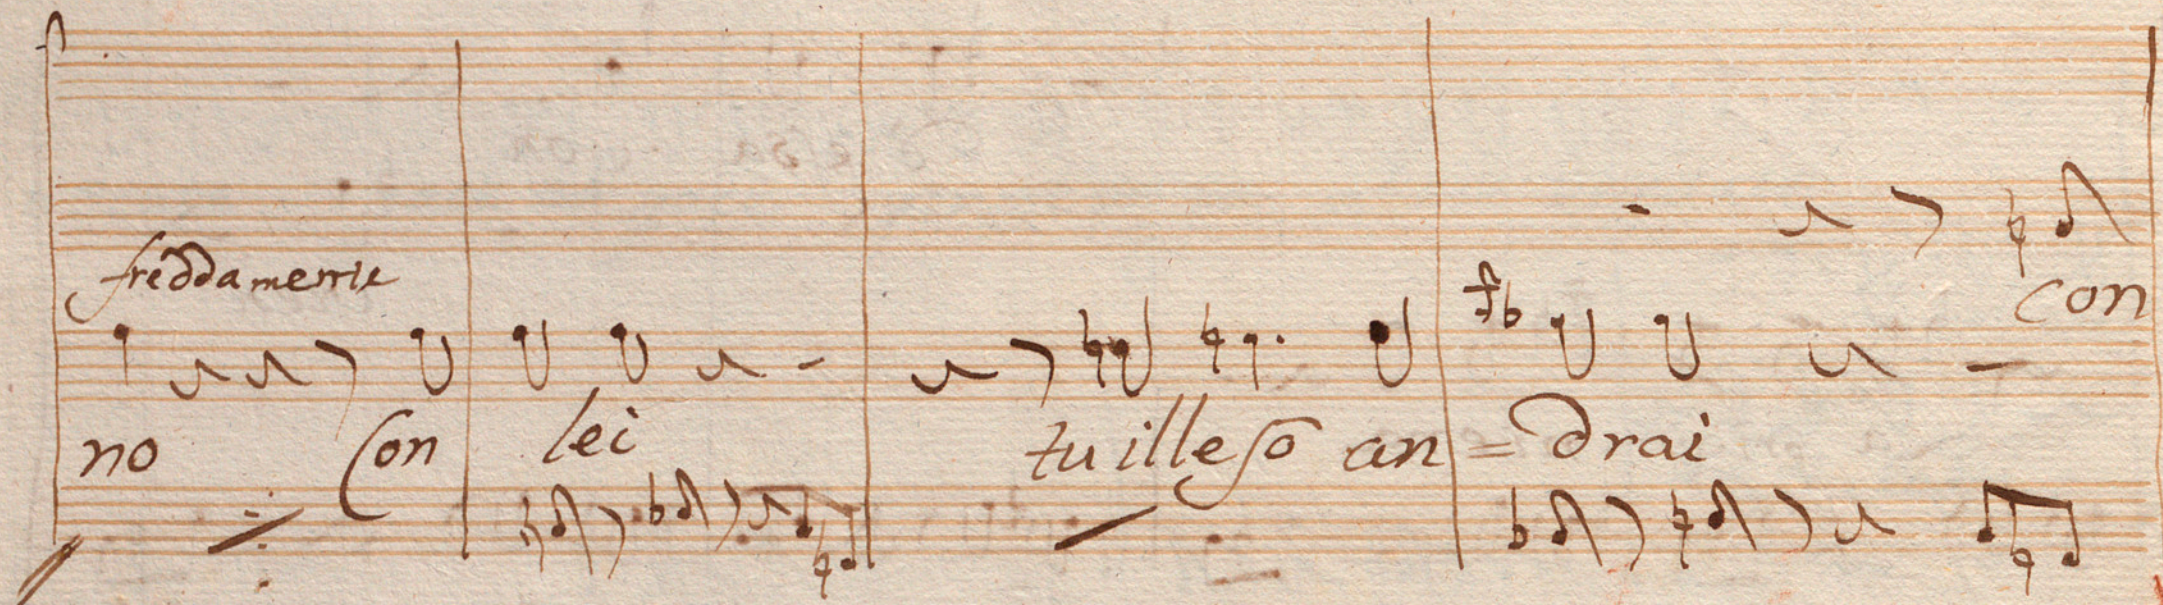 freddamente
con
no Con lei tu illeso an = drai